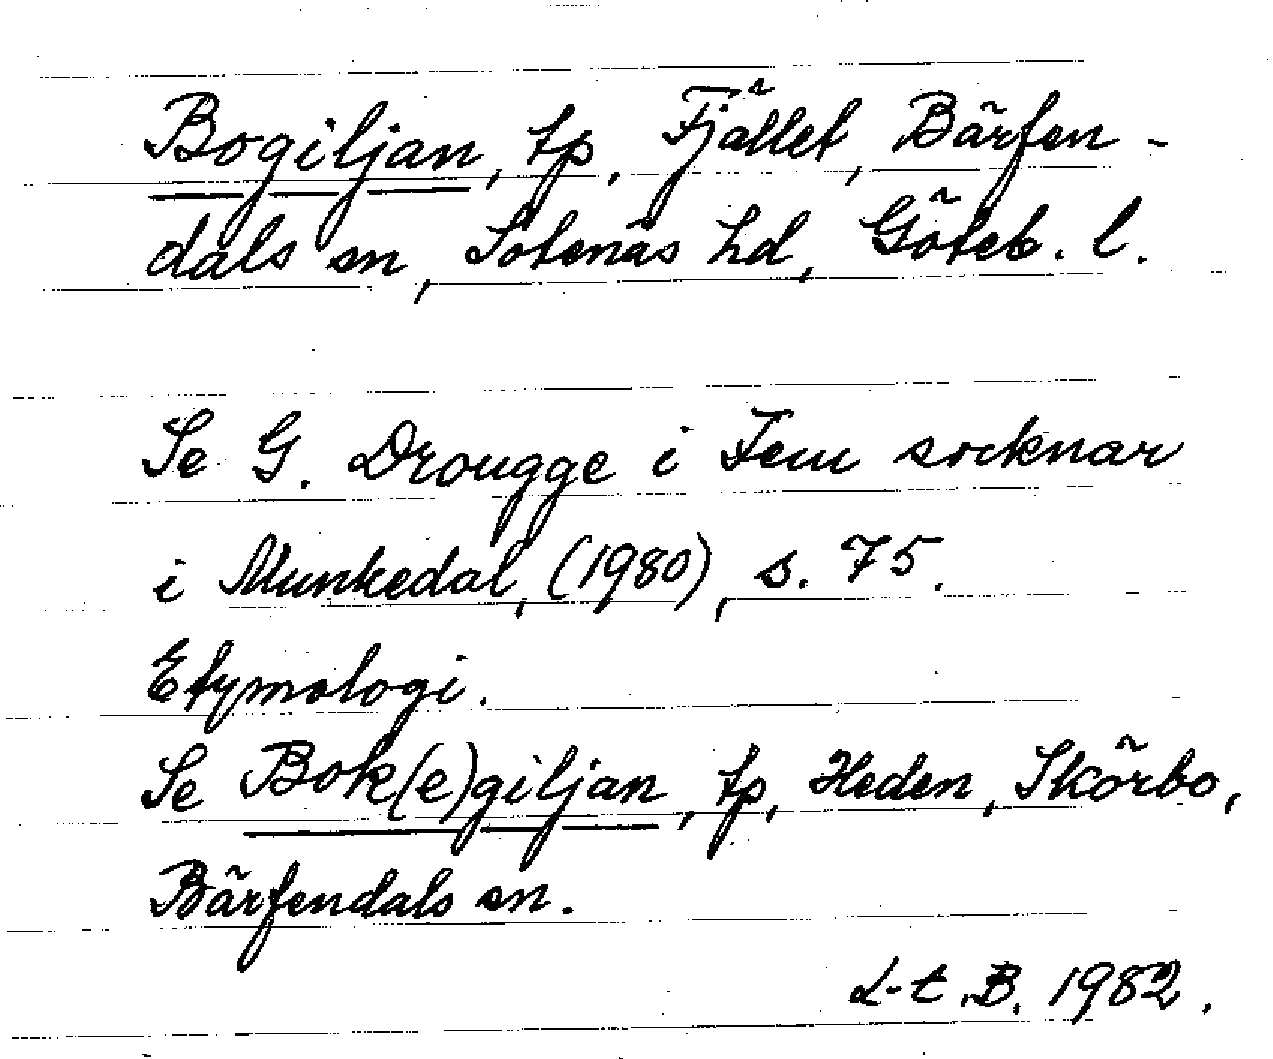 Bogiljan, tp, Fjället, Bärfen-
dals sn, Sotenäs hd, Göteb. l.
Se G. Drougge i Fem socknar
i Munkedal, (1980), s. 75.
Etymologi.
Se Bok(e)giljan, tp, Heden, Skörbo,
Bärfendals sn.
L-t B. 1982.